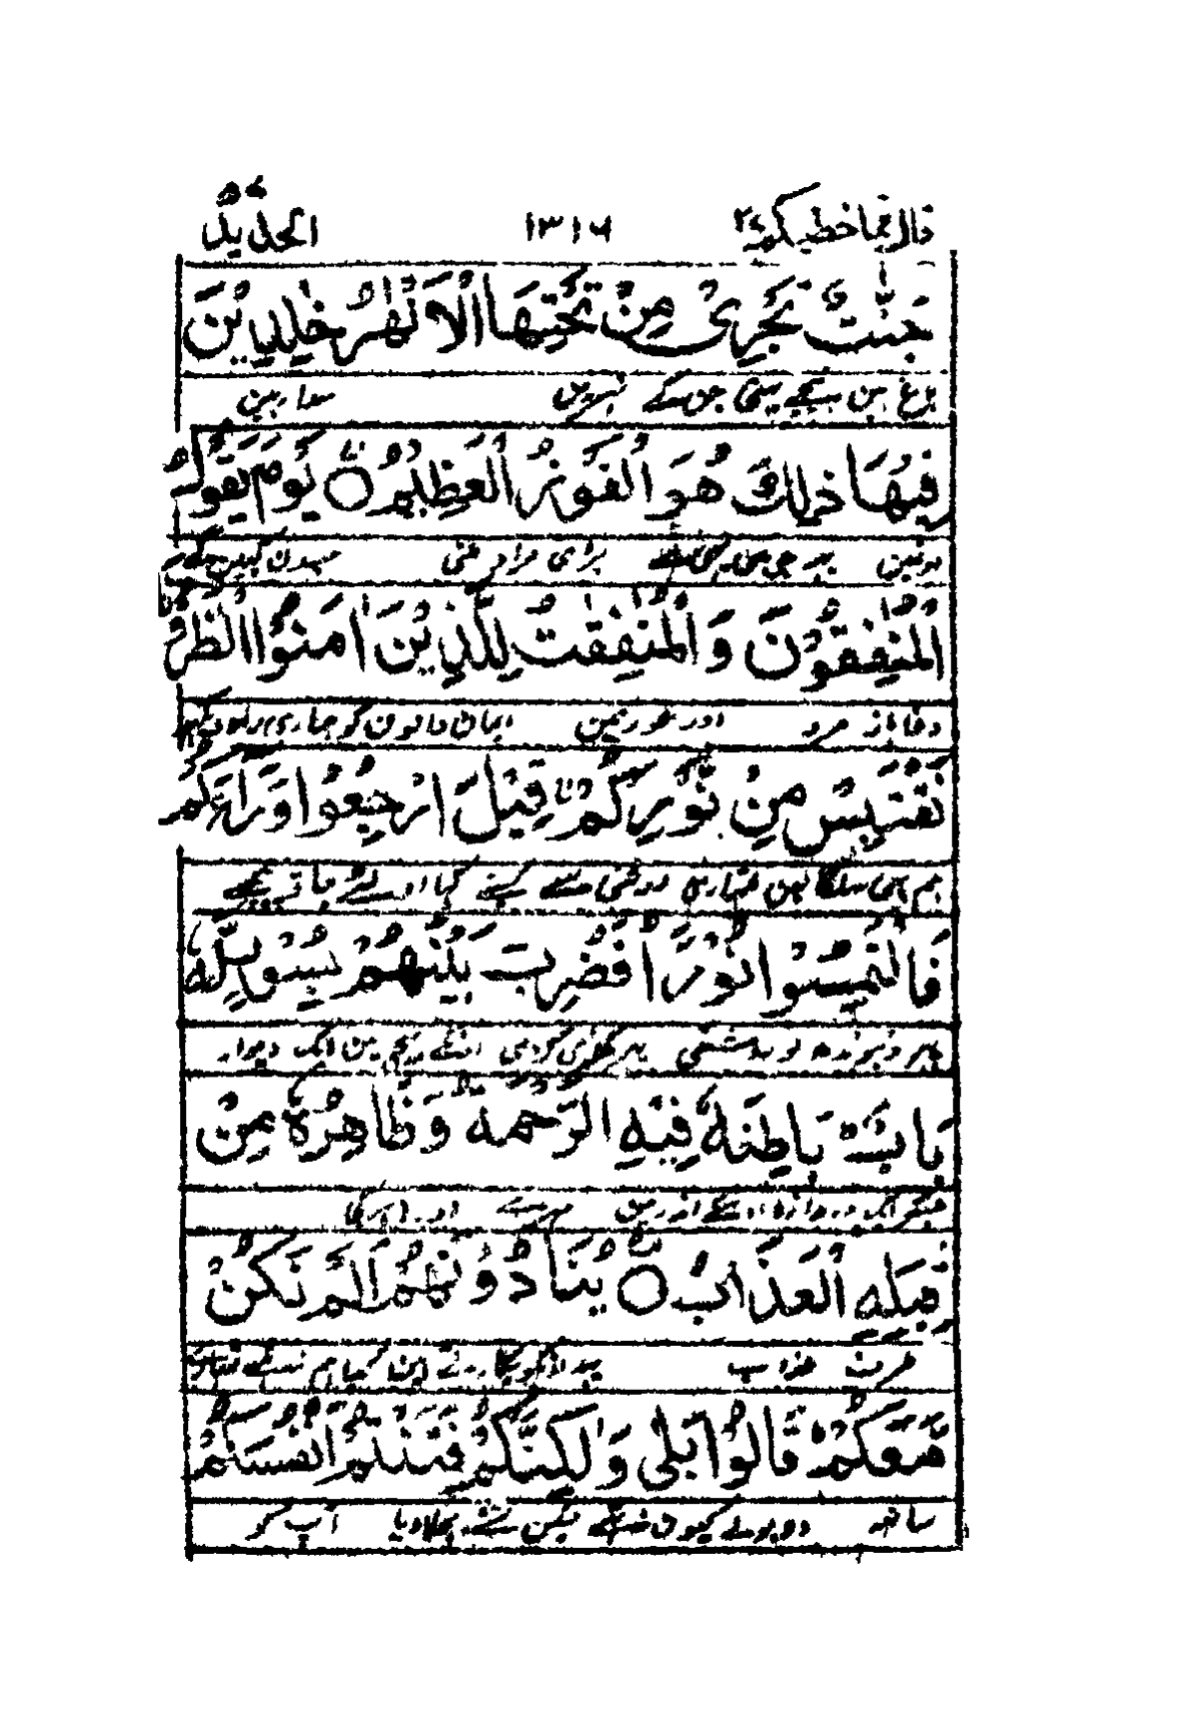 قال فما خطبكم ٢٧ ١٣١٦ الحدید ٥٧
جَنّٰتٌ تَجْرِیْ مِنْ تَحْتِهَا الْاَنْهٰرُ خٰلِدِیْنَ
باغ ہین نیچے بہتی جن کے نہرین سدا رہین
فِیْهَا ذٰلِكَ هُوَ الْفَوْزُ الْعَظِیْمُ ○ یَوْمَ یَقُوْلُ
اونمین یہ جو ہے یہی ہے بڑی مراد ملنی جسدن کہین گے
الْمُنٰفِقُوْنَ وَ الْمُنٰفِقٰتُ لِلَّذِیْنَ اٰمَنُوا انْظُرُوْنَا
دغاباز مرد اور عورتین ایمان والون کو ہماری راہ دیکہو
نَقْتَبِسْ مِنْ نُّوْرِكُمْ قِیْلَ ارْجِعُوْا وَرَآءَكُمْ
ہم بہی سلگا لین تمہاری روشنی سے کسنے کہا اولٹے جاؤ پیچہے
فَالْتَمِسُوْا نُوْرًا فَضُرِبَ بَیْنَهُمْ بِسُوْرٍ لَّهٗ
پہر ڈہونڈہ لو روشنی پہر کہڑی کردی انکے بیچ مین ایک دیوار
بَابٌ بَاطِنُهٗ فِیْهِ الرَّحْمَةُ وَ ظَاهِرُهٗ مِنْ
جسمین ایک دروازہ اسکے اندر مین مہر ہے اور باہر کی
قِبَلِهِ الْعَذَابُ ○ یُنَادُوْنَهُمْ اَلَمْ نَكُنْ
طرف عذاب یہ انکو پکارتے ہین کیا ہم نہ تہے تمہارے
مَّعَكُمْ قَالُوْا بَلٰی وَلٰكِنَّكُمْ فَتَنْتُمْ اَنْفُسَكُمْ
ساتہہ وہ بولے کیون نہ تہے لیکن تمنے بچلا دیا آپ کو